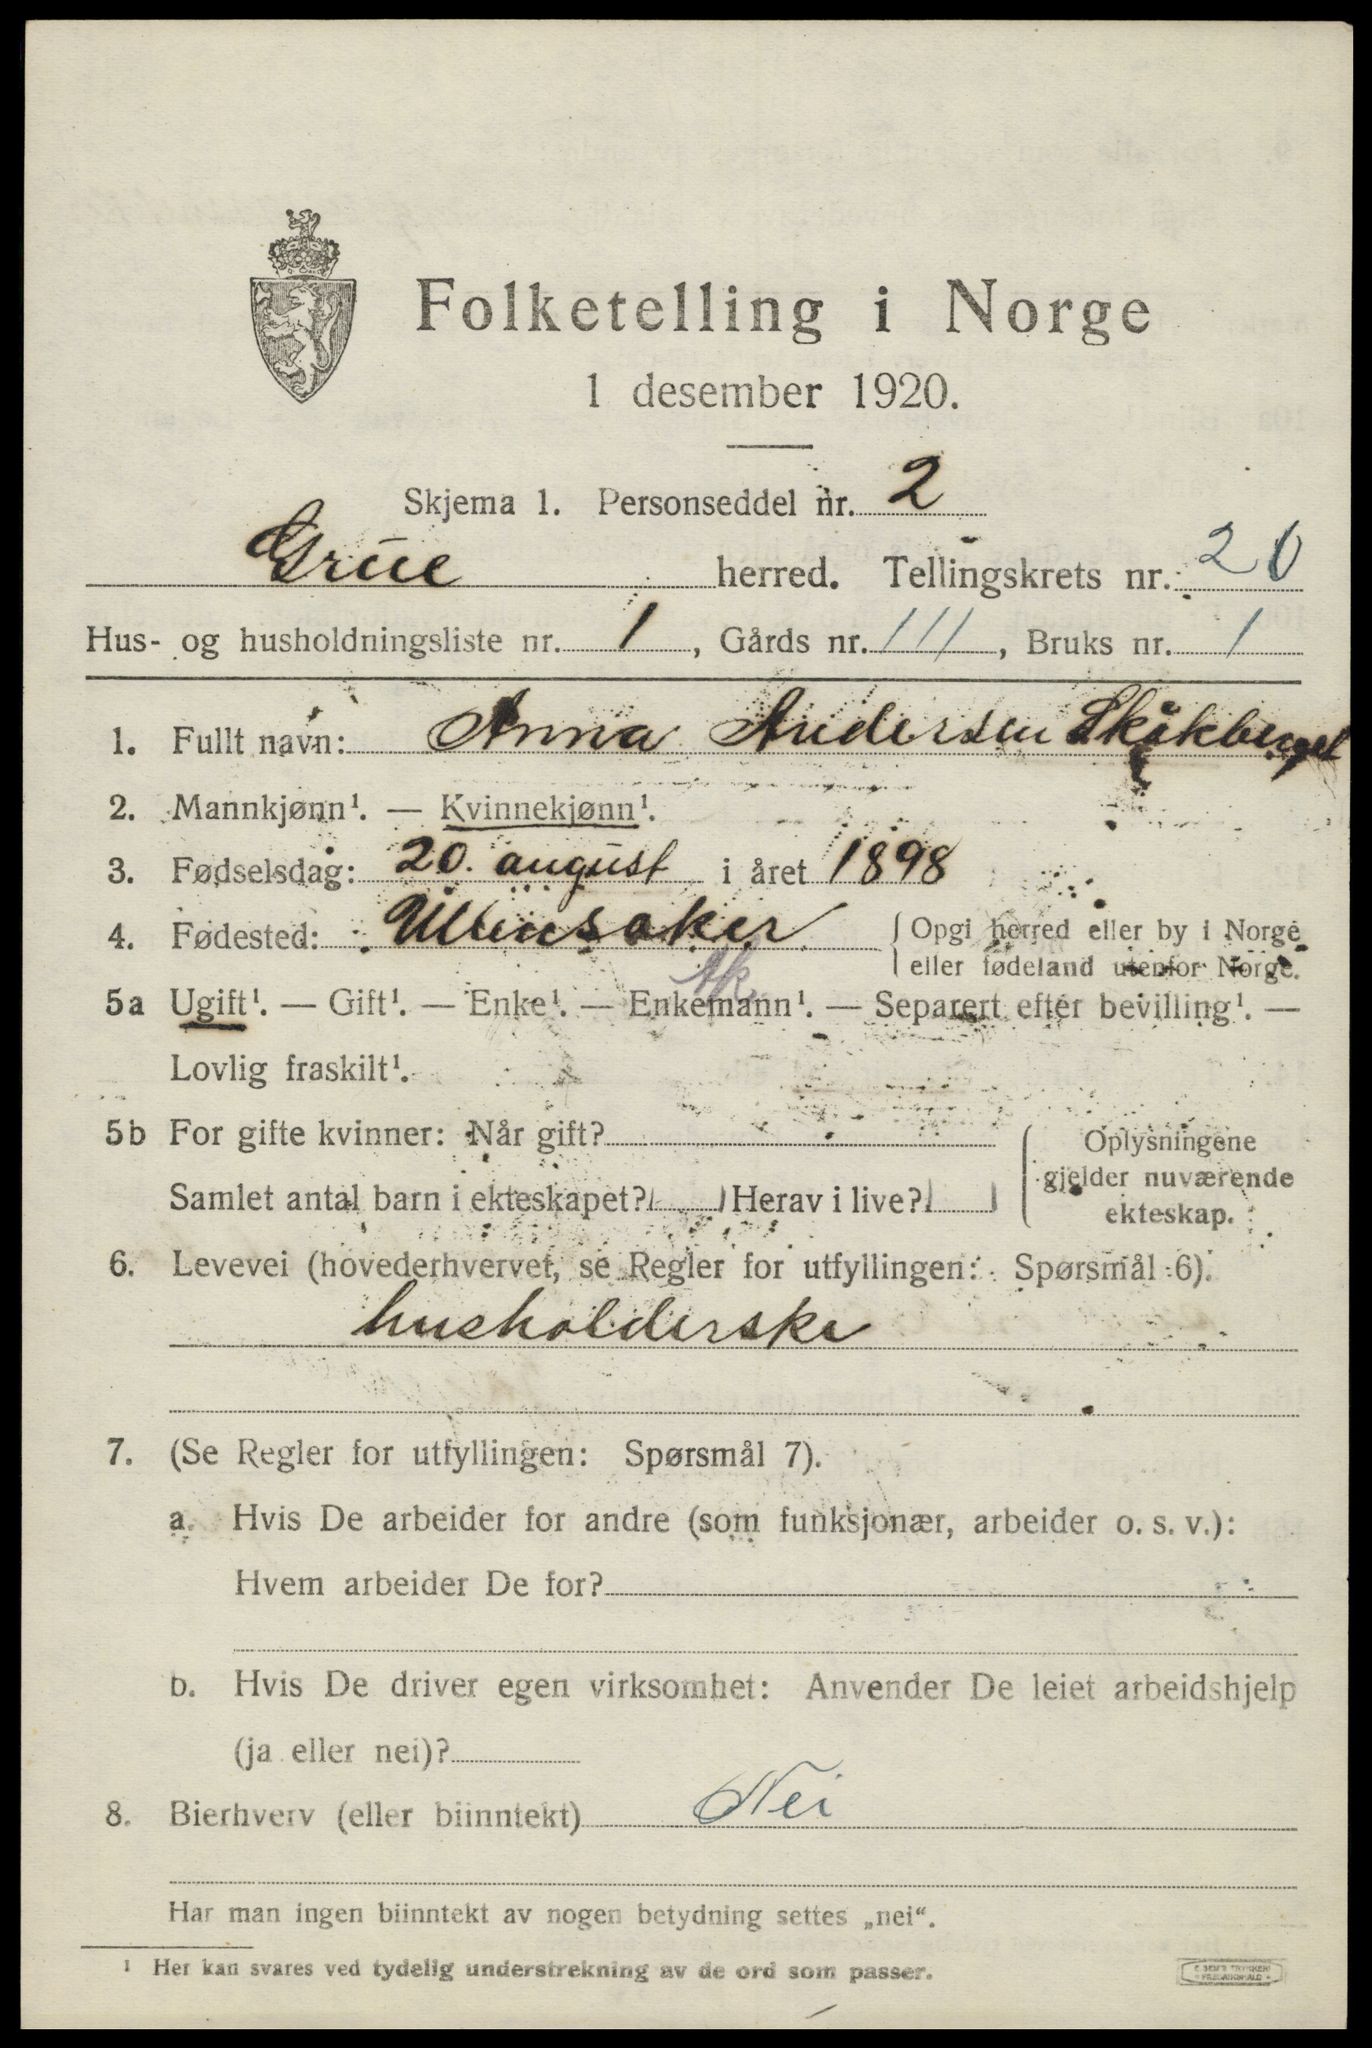 Folketelling i Norge
1 desember 1920.
Skjema 1. Personseddel nr. 2
Grue herred. Tellingskrets nr. 20
Hus- og husholdningsliste nr. 1, Gårds nr. 111, Bruks nr. 1
1. Fullt navn: Anna Andersen Skåkberget
2. Mannkjønn¹. — Kvinnekjønn¹.
3. Fødselsdag: 20. august i året 1898
4. Fødested: Ullensaker { Opgi herred eller by i Norge
eller fødeland utenfor Norge.
Ak.
5a Ugift¹. — Gift¹. — Enke¹. — Enkemann¹. — Separert efter bevilling¹. —
Lovlig fraskilt¹.
5b For gifte kvinner: Når gift?
Samlet antal barn i ekteskapet? Herav i live?
Oplysningene
gjelder nuværende
ekteskap.
6. Levevei (hovederhvervet, se Regler for utfyllingen: Spørsmål 6).
husholderske
7. (Se Regler for utfyllingen: Spørsmål 7).
a. Hvis De arbeider for andre (som funksjonær, arbeider o. s. v.):
Hvem arbeider De for?
b. Hvis De driver egen virksomhet: Anvender De leiet arbeidshjelp
(ja eller nei)?
8. Bierhverv (eller biinntekt) Nei
Har man ingen biinntekt av nogen betydning settes „nei“.
¹ Her kan svares ved tydelig understrekning av de ord som passer.